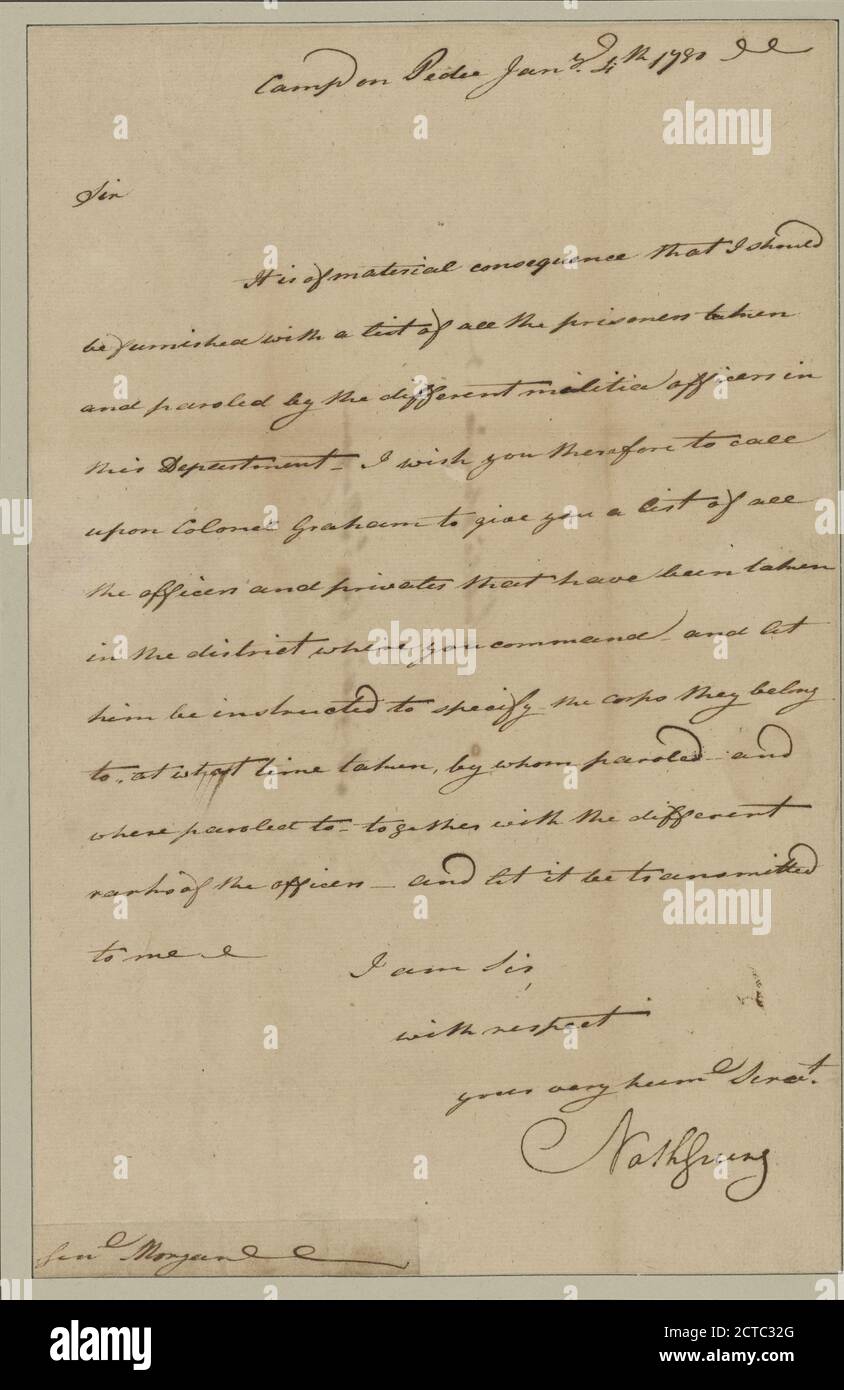 Camp on Pedee Jany. 4th 1780
Sir
It is of material consequence that I should
be furnished with a list of all the prisoners taken
and paroled by the different militia officers in
this Department - I wish you therefore to call
upon Colonel Graham to give you a list of all
the officers and privates that have been taken
in the district where you command and let
him be instructed to specify the corps they belong
to, at what time taken, by whom paroled - and
where paroled to - together with the different
ranks of the officers - and let it be transmitted
to me
I am Sir,
with respect
your very humle Servt.
Nath Greene
Genl Morgan
a alamy
alamy
a alamy
alamy
Image ID: 2CTC32G
www.alamy.com